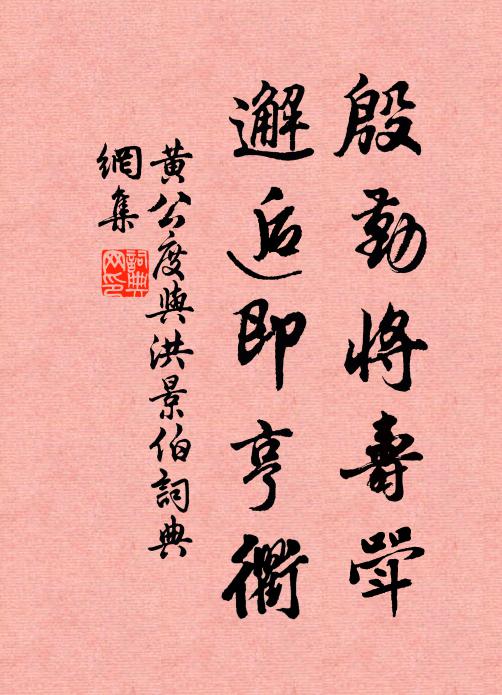 殷勤將壽斝
邂逅即亨衢
黄公度與洪景伯詞典
網集
詞典
网印